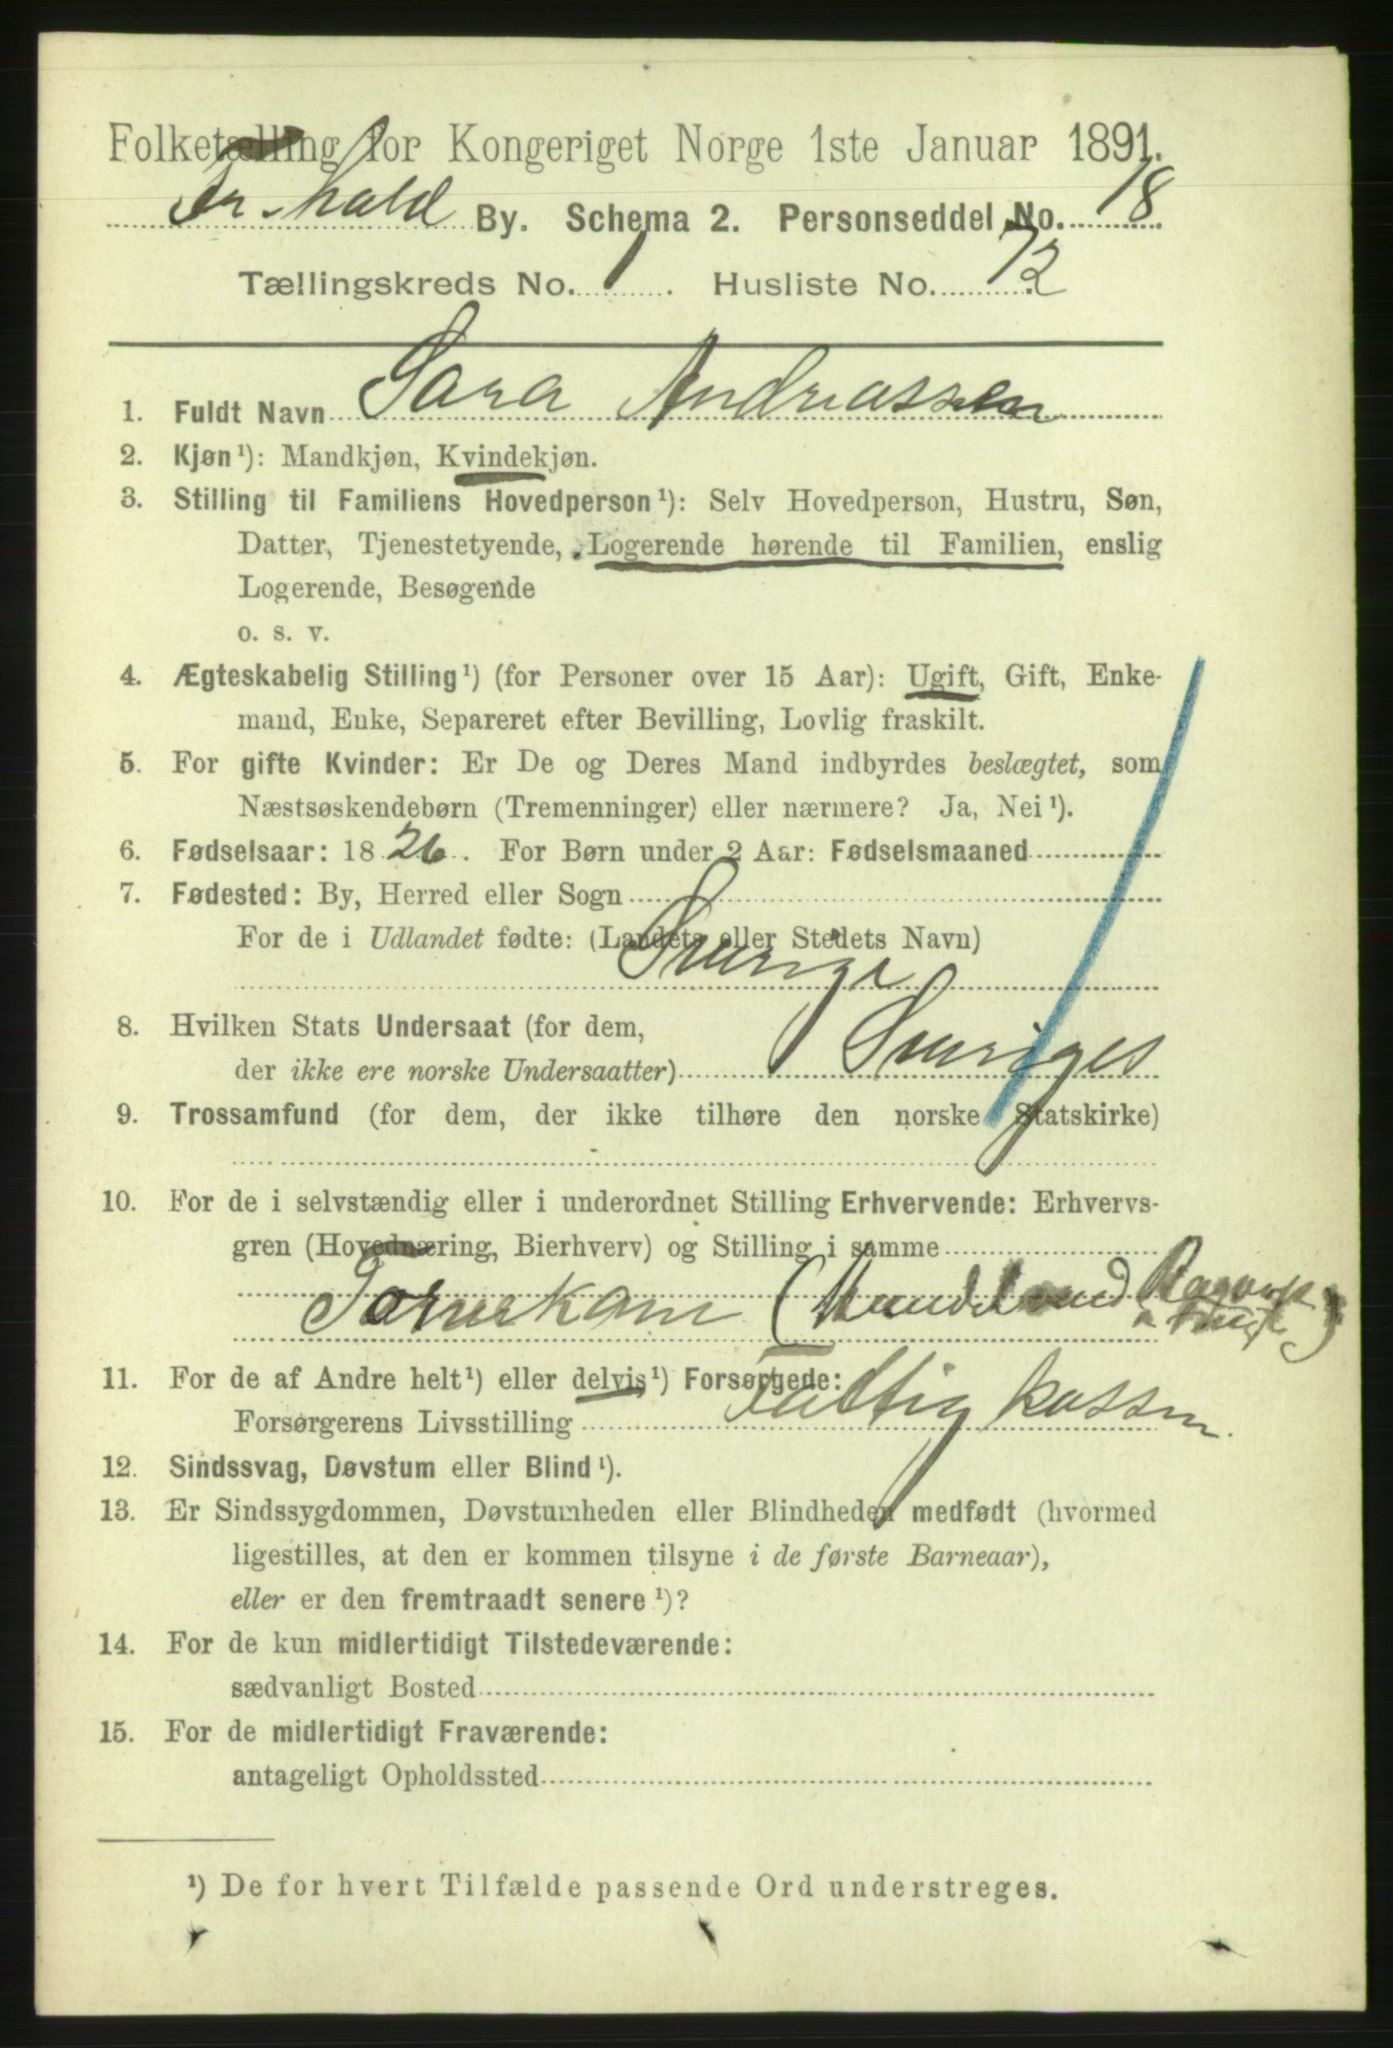 Folketælling for Kongeriget Norge 1ste Januar 1891.
Fr.hald By. Schema 2. Personseddel No. 18
Tællingskreds No. 1. Husliste No. 72
1. Fuldt Navn Sara Andreassen
2. Kjøn¹): Mandkjøn, Kvindekjøn.
3. Stilling til Familiens Hovedperson¹): Selv Hovedperson, Hustru, Søn,
Datter, Tjenestetyende, Logerende hørende til Familien, enslig
Logerende, Besøgende
o. s. v.
4. Ægteskabelig Stilling¹) (for Personer over 15 Aar): Ugift, Gift, Enke-
mand, Enke, Separeret efter Bevilling, Lovlig fraskilt.
5. For gifte Kvinder: Er De og Deres Mand indbyrdes beslægtet, som
Næstsøskendebørn (Tremenninger) eller nærmere? Ja, Nei¹).
6. Fødselsaar: 1826. For Børn under 2 Aar: Fødselsmaaned
7. Fødested: By, Herred eller Sogn
For de i Udlandet fødte: (Landets eller Stedets Navn)
Sverige
8. Hvilken Stats Undersaat (for dem,
der ikke ere norske Undersaatter) Sveriges
9. Trossamfund (for dem, der ikke tilhøre den norske Statskirke)
10. For de i selvstændig eller i underordnet Stilling Erhvervende: Erhvervs-
gren (Hovednæring, Bierhverv) og Stilling i samme
Torvekone (
11. For de af Andre helt¹) eller delvis¹) Forsørgede:
Forsørgerens Livsstilling Fattigkassen
12. Sindssvag, Døvstum eller Blind¹).
13. Er Sindssygdommen, Døvstumheden eller Blindheden medfødt (hvormed
ligestilles, at den er kommen tilsyne i de første Barneaar),
eller er den fremtraadt senere¹)?
14. For de kun midlertidigt Tilstedeværende:
sædvanligt Bosted
15. For de midlertidigt Fraværende:
antageligt Opholdssted
¹) De for hvert Tilfælde passende Ord understreges.